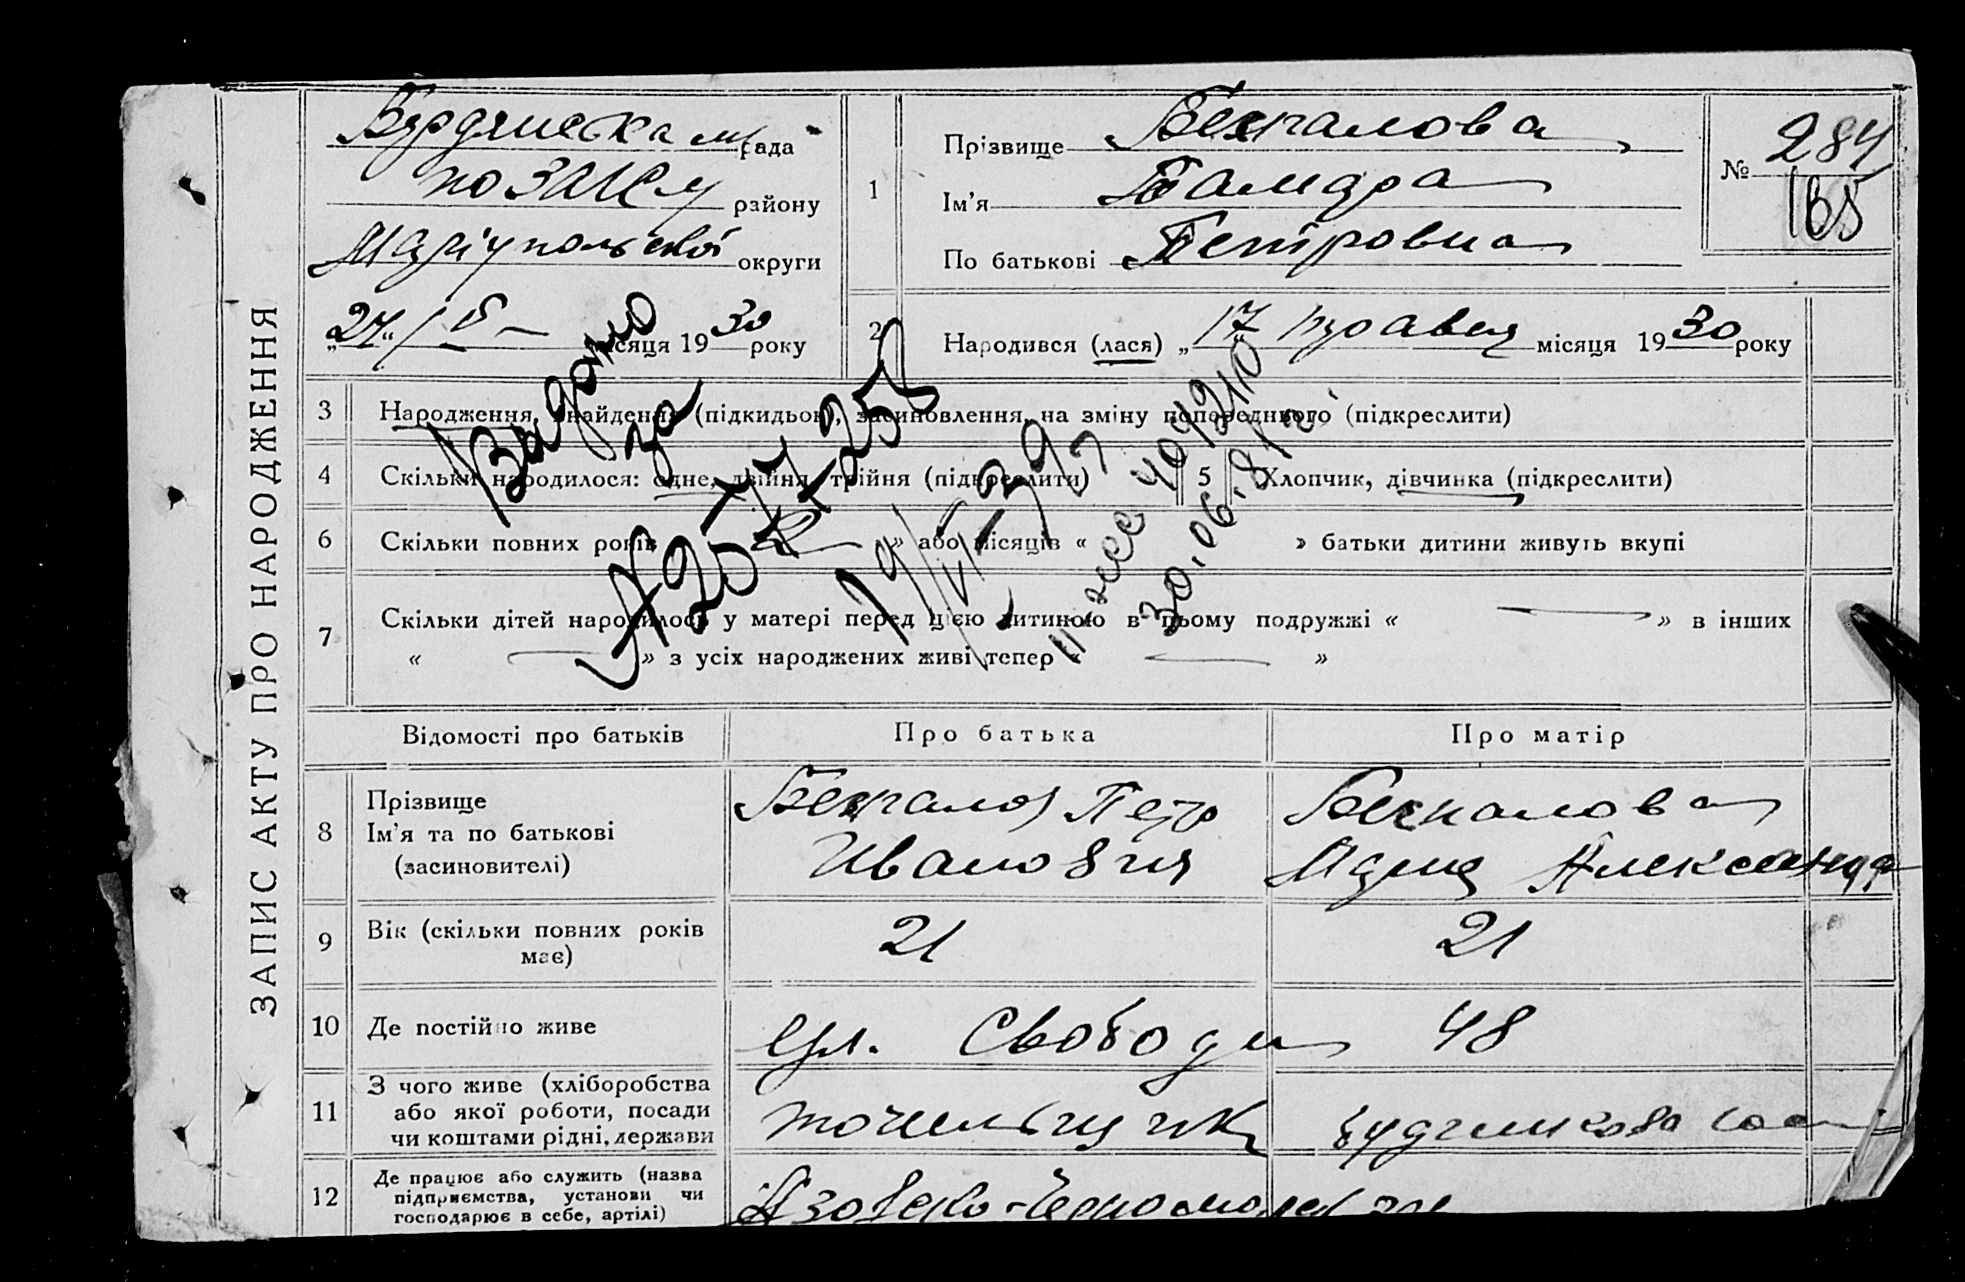 ЗАПИС АКТУ ПРО НАРОДЖЕННЯ
Бердянська рада
по ЗАКСу району
Маріупольської округи
„24“ / V – місяця 1930 року
1
Прізвище
Ім'я Тамара
По батькові Петровна
№ 284
165
2 Народився (лася) „17“ травня місяця 1930 року
3 Народження, знайдення (підкидьок), засиновлення, на зміну попереднього (підкреслити)
4 Скільки народилося: одне, двійня, трійня (підкреслити)
5 Хлопчик, дівчинка (підкреслити)
6 Скільки повних років « » або місяців « » батьки дитини живуть вкупі
7 Скільки дітей народилось у матері перед цією дитиною в цьому подружжі « — » в інших
« — » з усіх народжених живі тепер « — »
Видано
за
30.06.81
Відомості про батьків Про батька Про матір
8 Прізвище
Ім'я та по батькові
(засиновителі)
Петр
Иванович
Мария Александр
9 Вік (скільки повних років має) 21 21
10 Де постійно живе ул. Свободи 48
11 З чого живе (хліборобства або якої роботи, посади чи коштами рідні, держави
точильщик
12 Де працює або служить (назва підприємства, установи чи господарює в себе, артілі)
Азовско-Черноморск